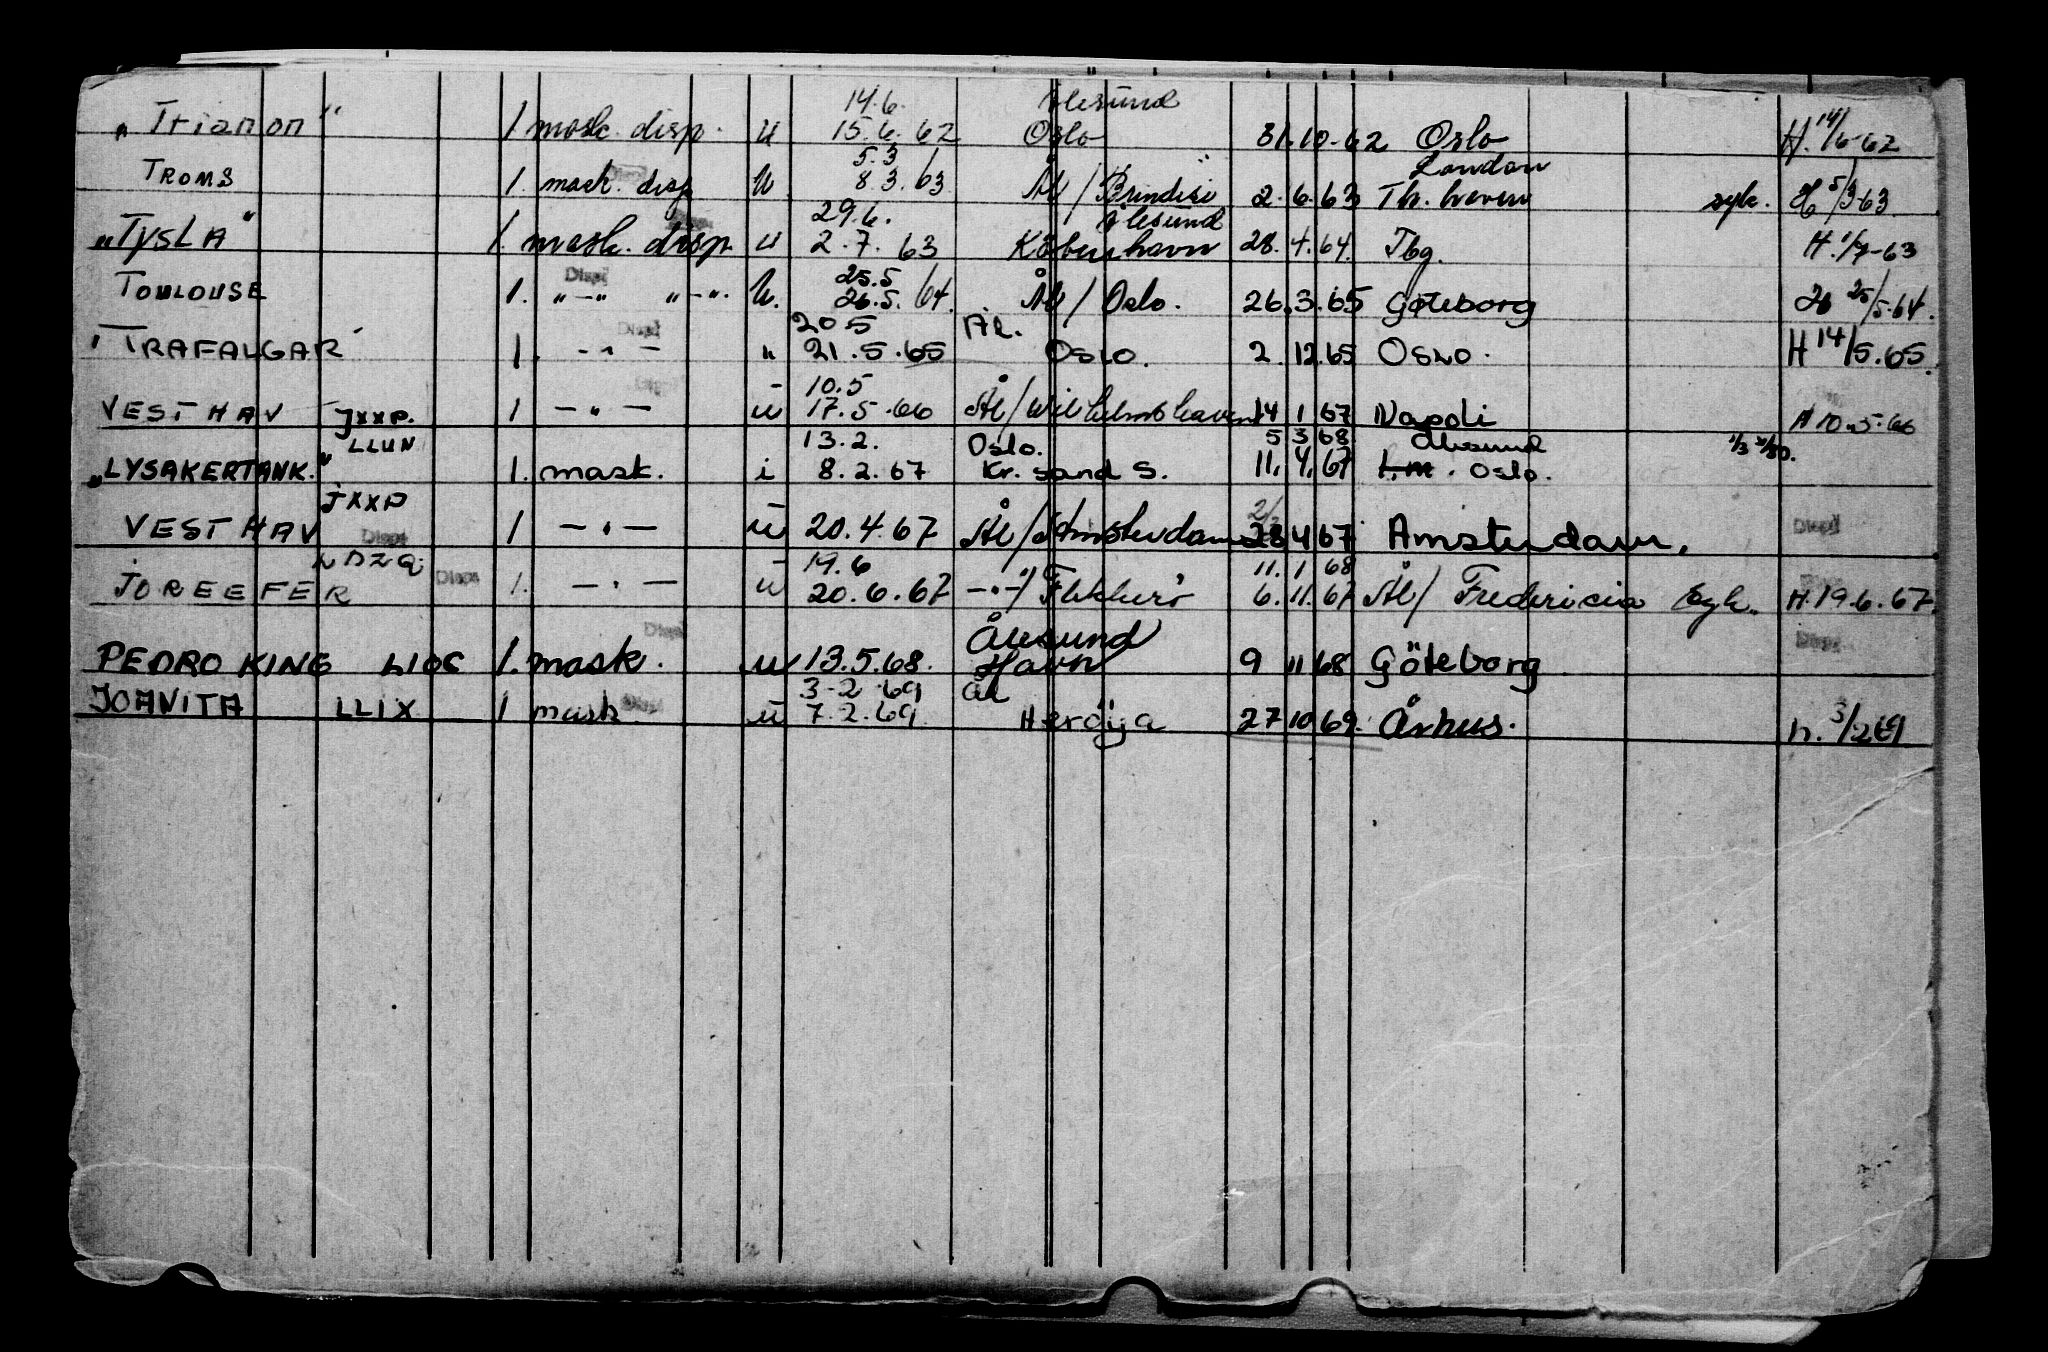 14.6. Ålesund
"Trianon" 1 mask. disp. u 15.6.62 Oslo 31.10.62 Oslo H. 14/6-62
5.3 London
TROMS 1. mask. disp U. 8.3.63 Ål/Brindisi 2.6.63 Th. haven syk. H 5/3-63
29.6. Ålesund
"TYSLA" 1. mask. disp. u 2.7.63 København 28.4.64. Tbg. H. 1/7-63
Disp 25.5
TOULOUSE 1. "-" "-" U. 26.5.64. Ål/Oslo. 26.3.65 Göteborg 25/5-64.
20.5 ÅL. Disp
"TRAFALGAR" 1. -"- " 21.5.65 OSLO. 2.12.65 OSLO. H 14/5.65
10.5 Disp
VESTHAV JXXP. 1 -"- u 17.5.66 Ål/Wilhelmshaven 14 1 67 Napoli H 10.5.66
LLUN 13.2. Oslo. 5 3 68 Ålesund
"LYSAKERTANK." 1. mask. i 8.2.67 Kr. sand S. 11.4.67 Oslo.
JXXP
VESTHAV Disp 1 -"- u 20.4.67 Ål/Amsterdam 28 4 67 Amsterdam. Disp
LDZQ 19.6 11. 1 68
JOREEFER Disp 1. -"- u 20.6.67 -"-/Flekkerö 6.11.67 Ål/Fredericia syk. H.19.6.67.
Disp Ålesund Disp
PEDRO KING LIOC 1. mask. u 13.5.68. Havn 9 11 68 Göteborg
3-2.69 ål
JOAVITA LLIX 1 mask Disp u 7.2.69 Heröya 27 10 69. Århus. h. 3/2 69